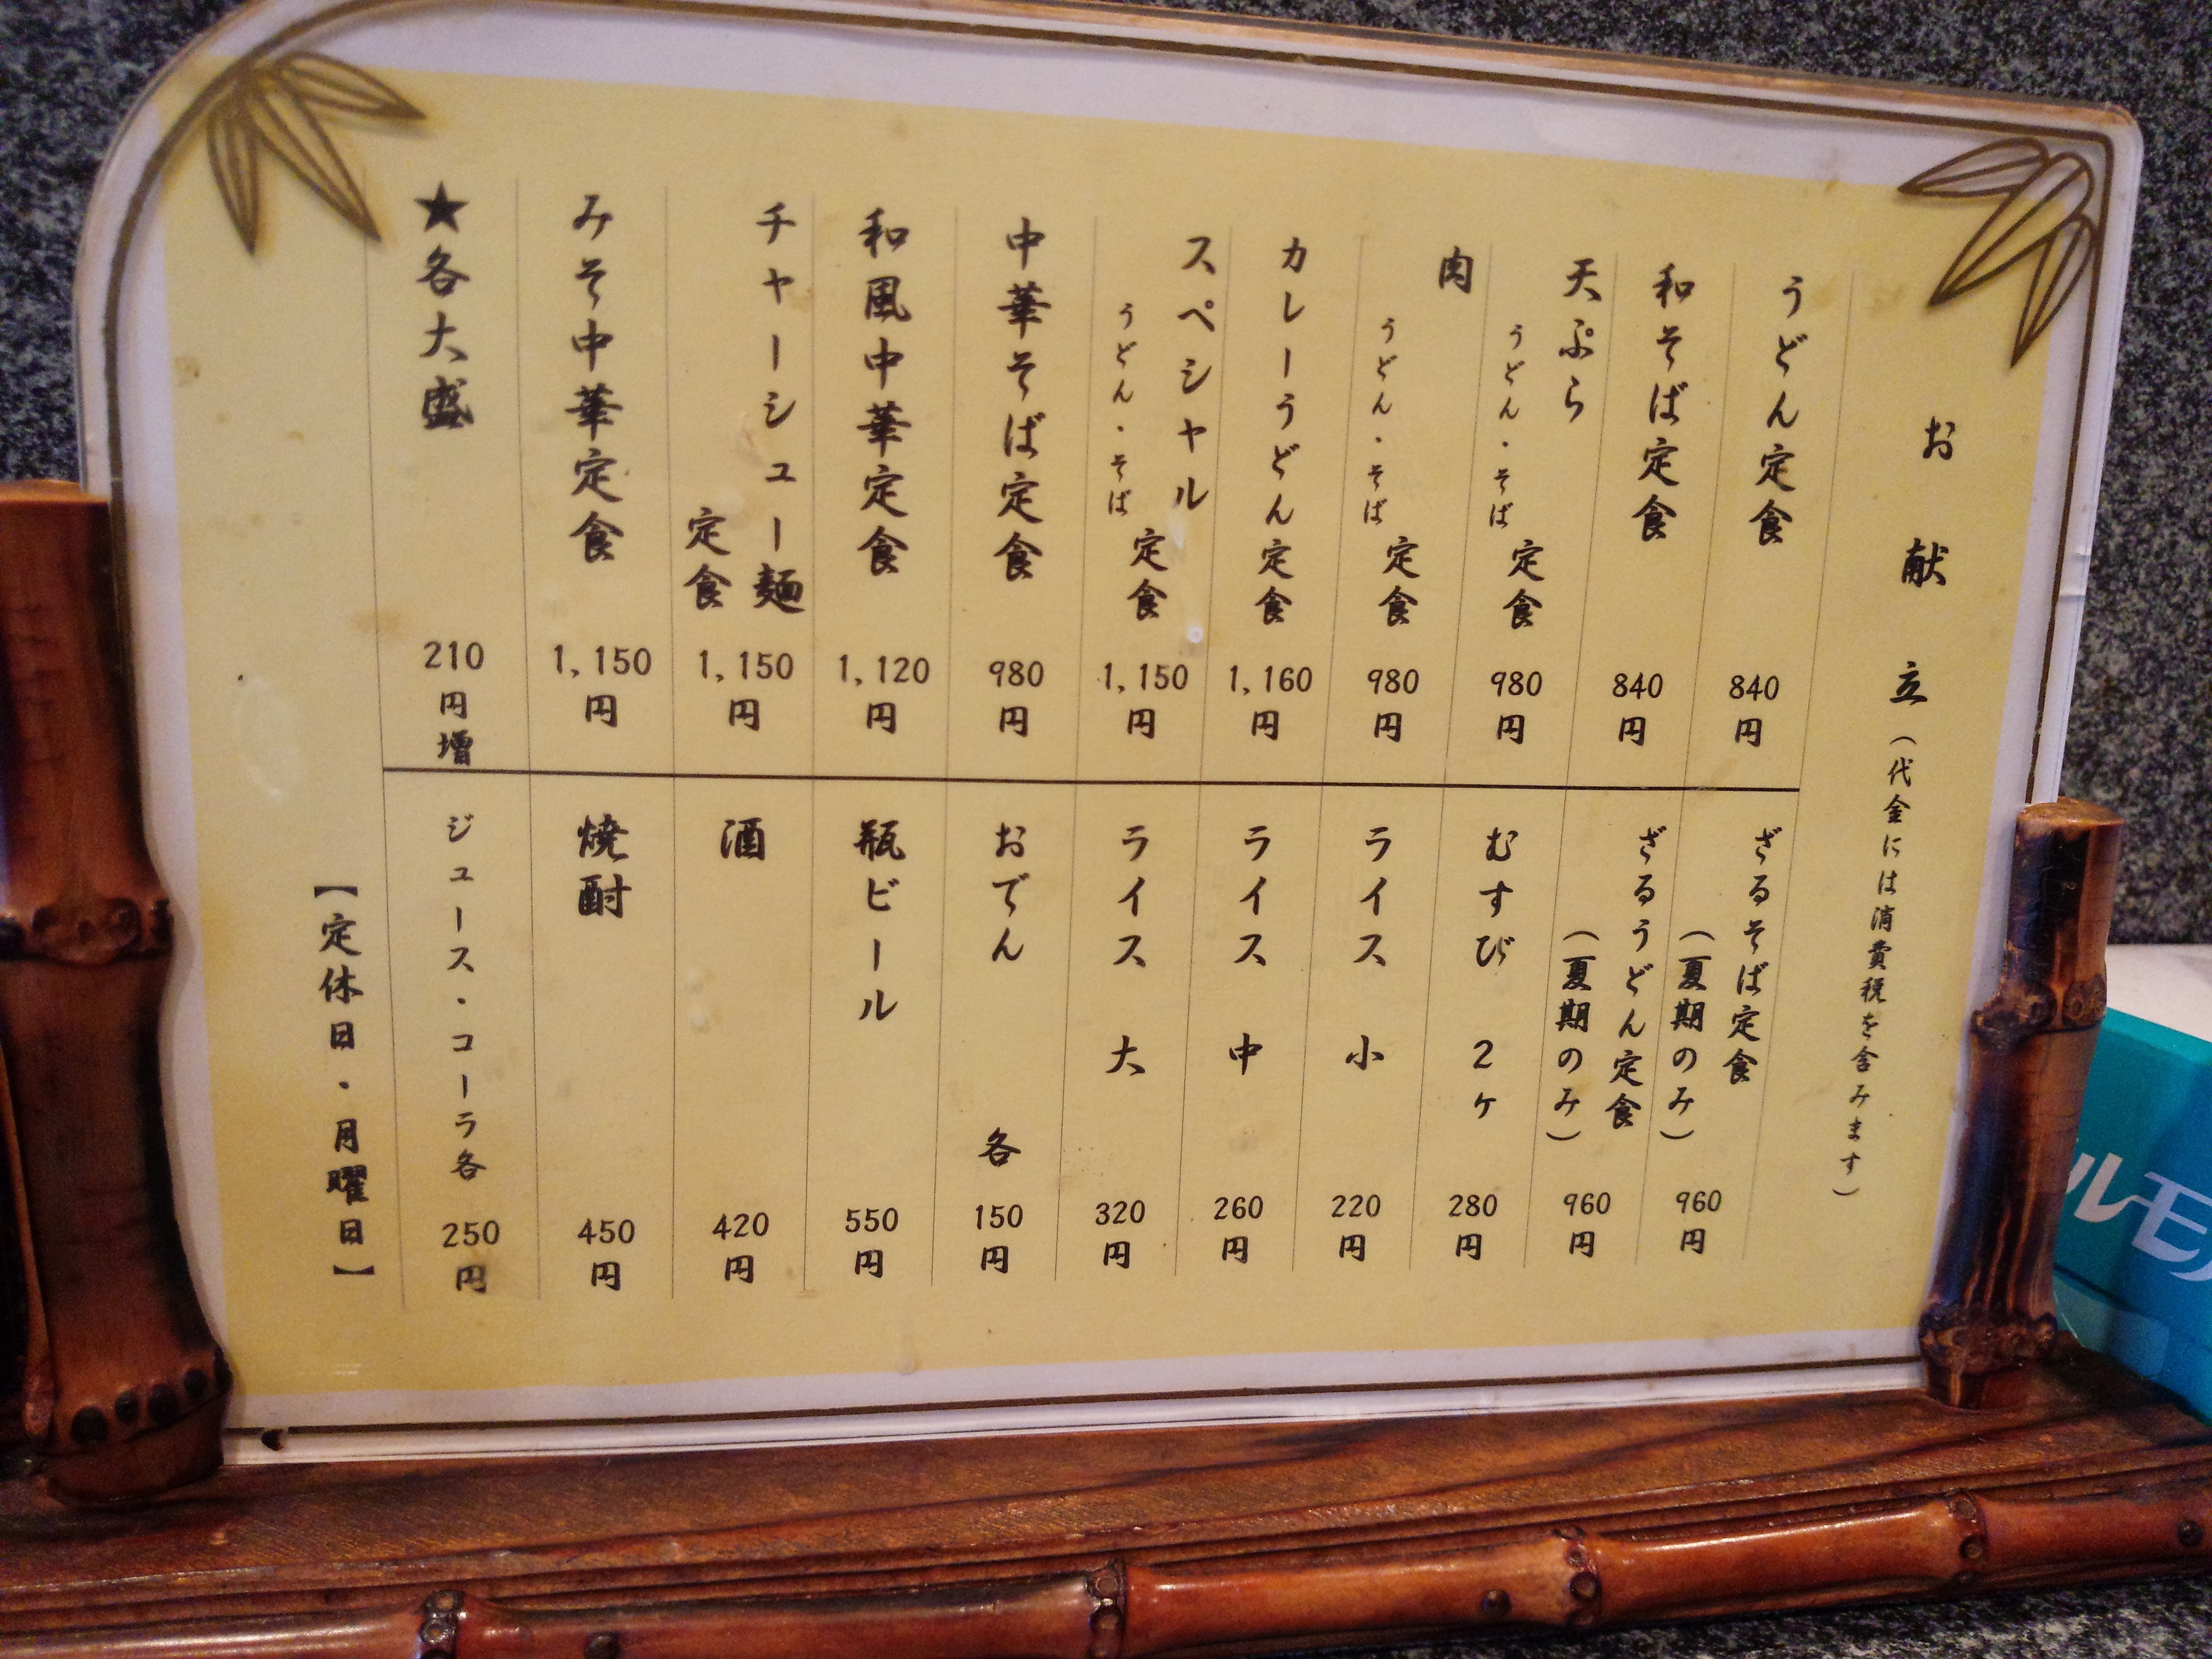 お献立（代金には消費税を含みます）
うどん定食 840円
和そば定食 840円
天ぷらうどん・そば定食 980円
肉うどん・そば定食 980円
カレーうどん定食 1,160円
スペシャルうどん・そば定食 1,150円
中華そば定食 980円
和風中華定食 1,120円
チャーシュー麺定食 1,150円
みそ中華定食 1,150円
★各大盛 210円増
ざるそば定食（夏期のみ） 960円
ざるうどん定食（夏期のみ） 960円
むすび 2ヶ 280円
ライス 小 220円
ライス 中 260円
ライス 大 320円
おでん 各 150円
瓶ビール 550円
酒 420円
焼酎 450円
ジュース・コーラ各 250円
【定休日・月曜日】
ルモ